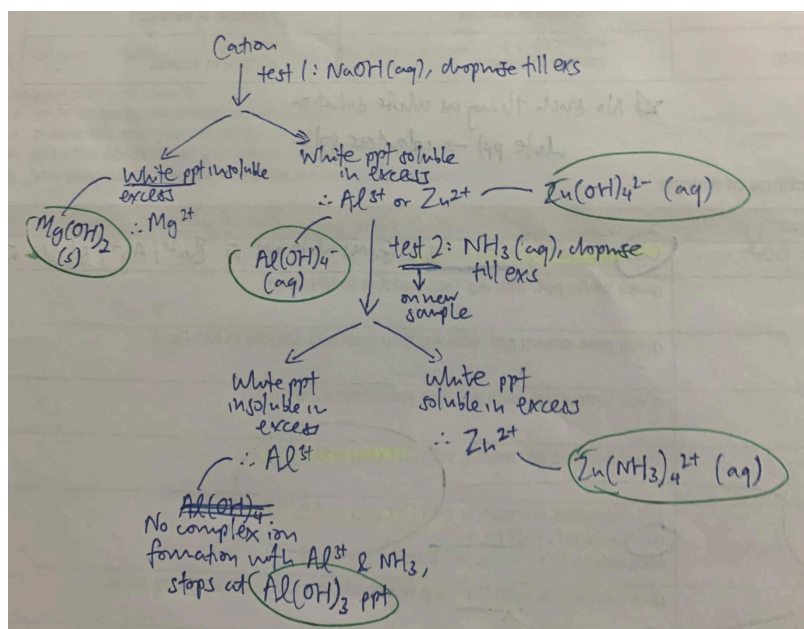 Cation
test 1: NaOH(aq), dropwise till exs
White ppt insoluble
excess
∴ Mg²⁺
Mg(OH)₂
(s)
White ppt soluble
in excess
∴ Al³⁺ or Zn²⁺
Zn(OH)₄²⁻ (aq)
Al(OH)₄⁻
(aq)
test 2: NH₃(aq), dropwise
till exs
on new
sample
White ppt
insoluble in
excess
∴ Al³⁺
White ppt
soluble in excess
∴ Zn²⁺
Zn(NH₃)₄²⁺ (aq)
Al(OH)₄
No complex ion
formation with Al³⁺ & NH₃,
stops at Al(OH)₃ ppt